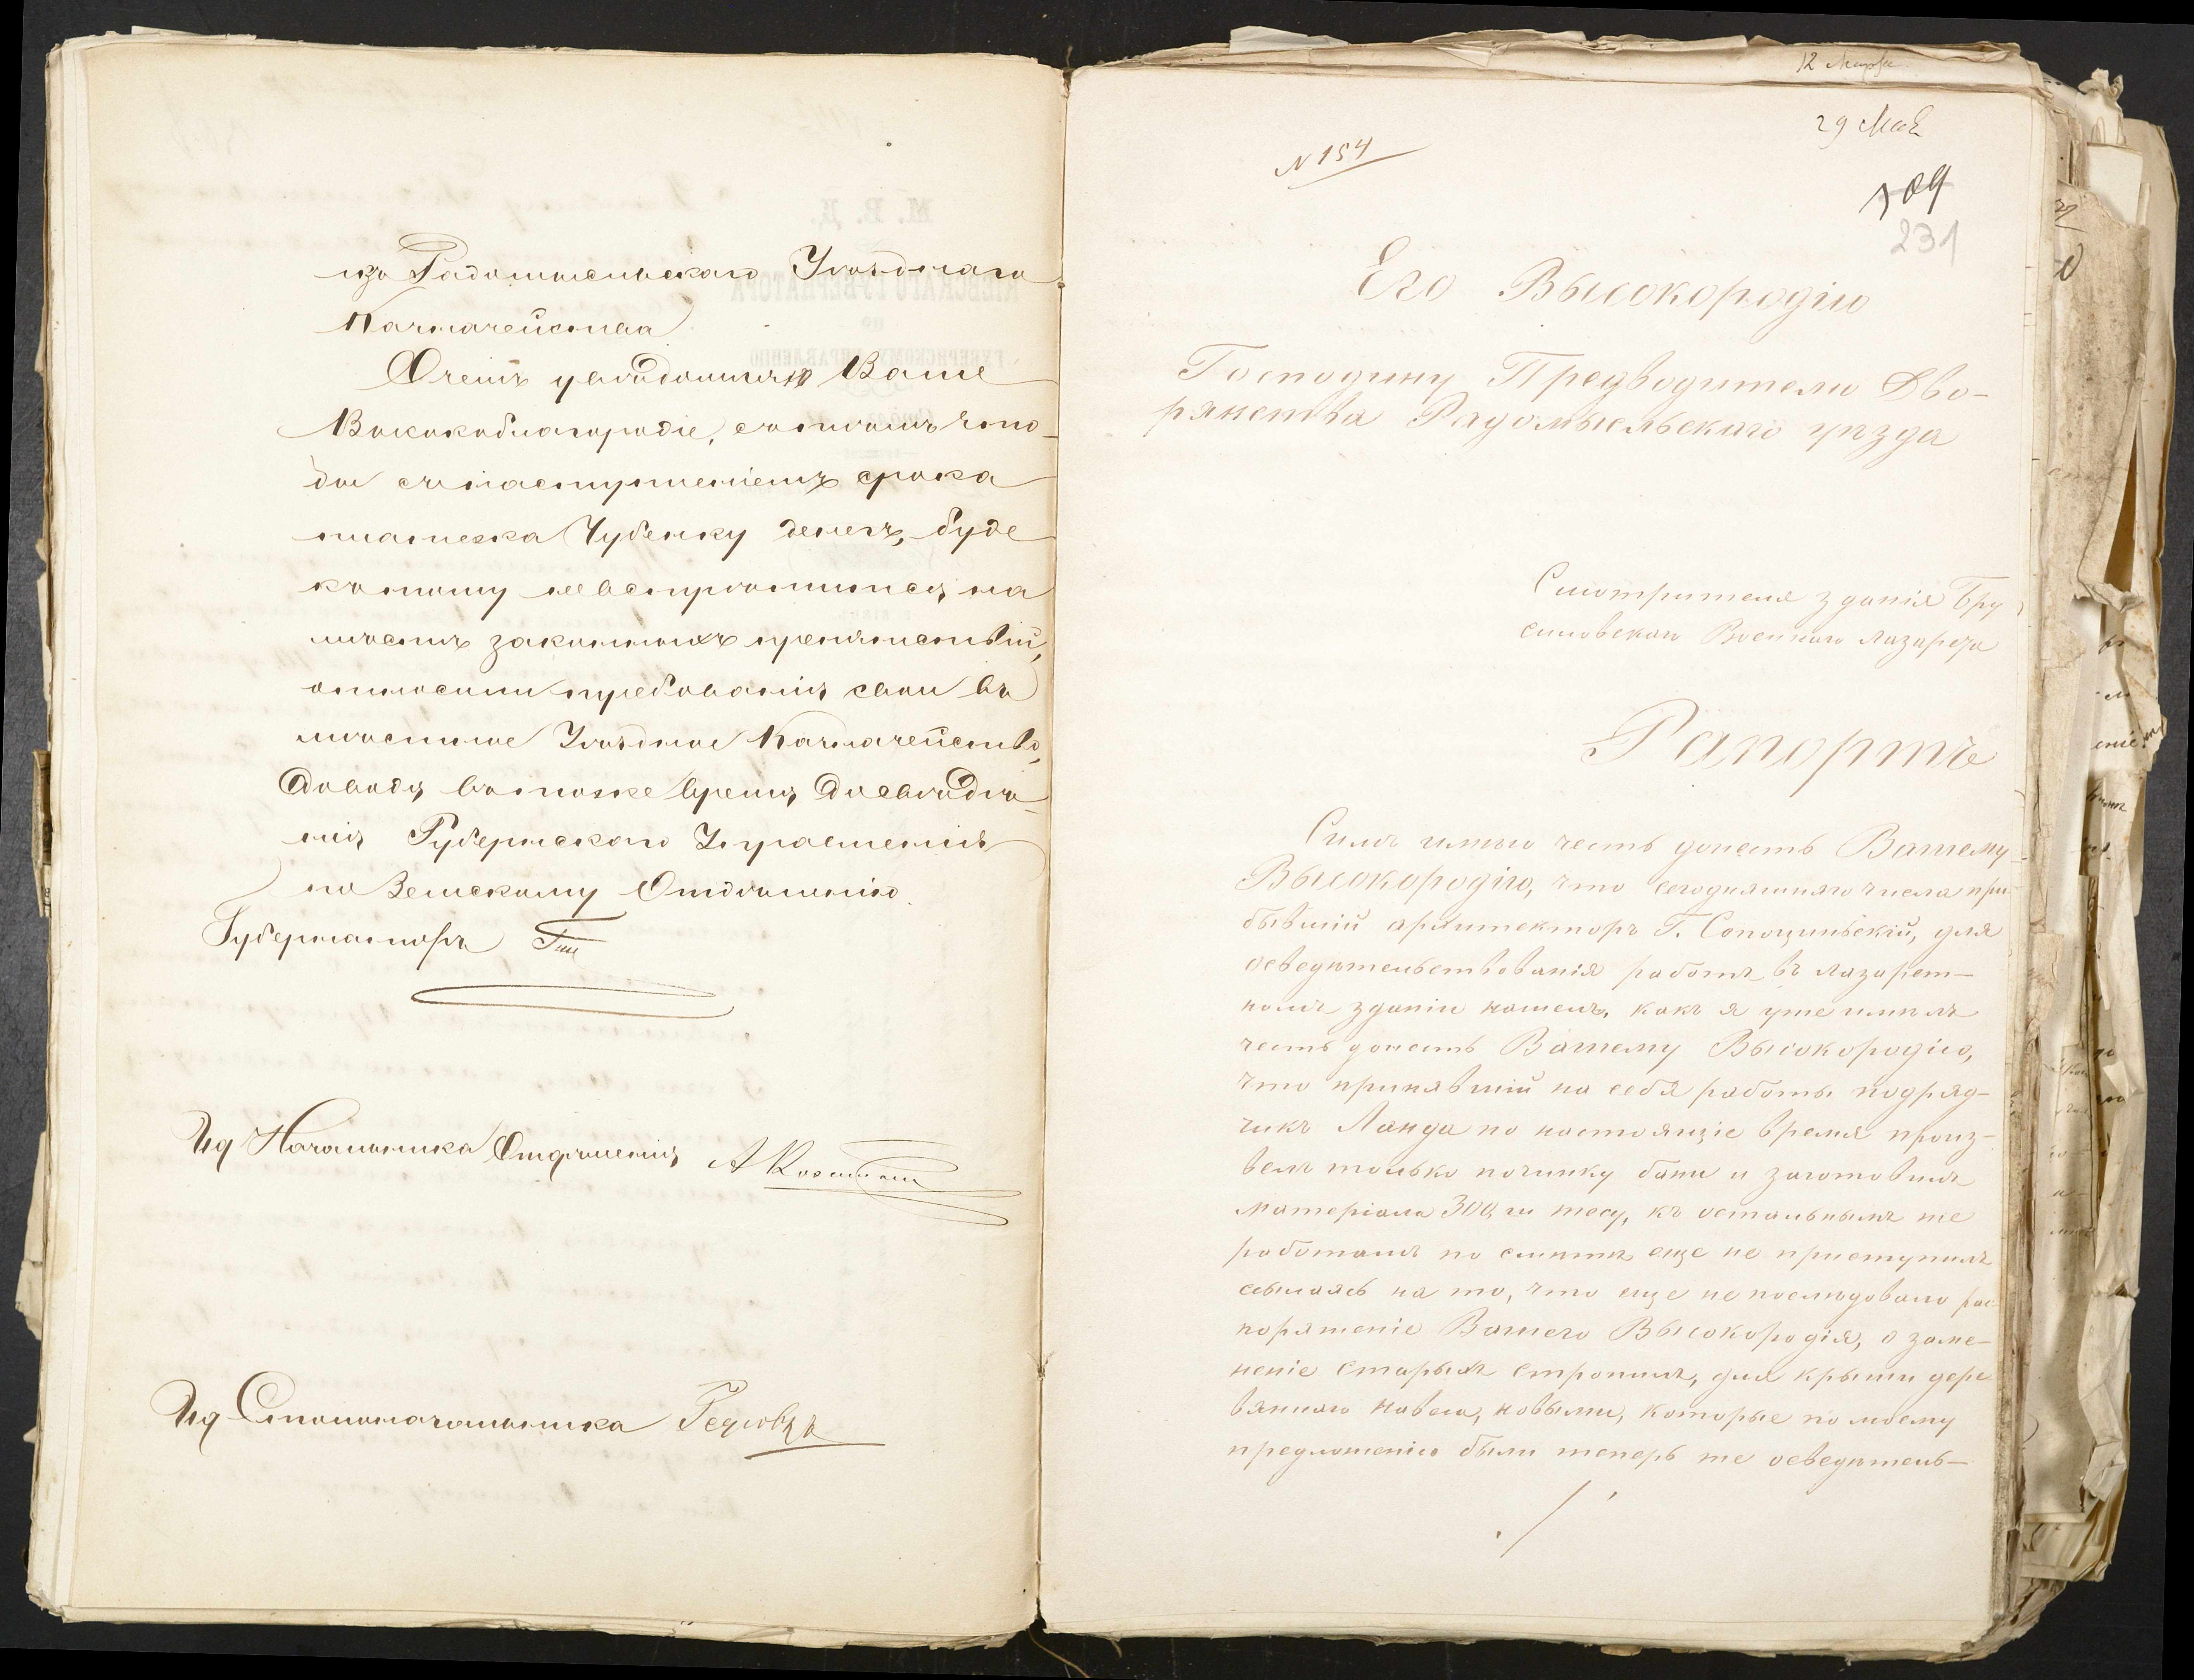 изъ Радомысльскаго Уѣзднаго
Казначейства
О чемъ увѣдомляю Ваше
Высокоблагородіе, съ тѣмъ что-
бы съ наступленіемъ срока
платежа Чубенку денегъ, буде
къ тому не встрѣтится на
мѣстѣ законныхъ препятствій,
относили требованія свои въ
мѣстное Уѣздное Казначейство,
доводя въ тоже время до свѣдѣ-
нія Губернскаго Управленія
по Земскому Отдѣленію.
Губернаторъ
Ид Начальника Отдѣленія
Ид Столоначальника
12 Марта
29 Мая
N 154
109
231
Его Высокородію
Господину Предводителю Дво-
рянства Радомысльскаго уѣзда
Смотрителя зданія Бру
силовскаго Военнаго Лазарета
Рапортъ
Симъ имѣю честь донесть Вашему
Высокородію, что сегодняшняго числа при-
бывшій архитекторъ Г. для
осведѣтельствованія работъ въ лазарет-
номъ зданіи нашелъ, какъ я уже имѣлъ
честь донесть Вашему Высокородію,
что принявшій на себя работы подряд-
чикъ Ланда по настоящіе время произ-
велъ только починку бани и заготовилъ
матеріала 300 тесу, къ остальнымъ же
работамъ по смѣтѣ еще не приступилъ
ссылаясь на то, что еще не послѣдовало рас-
поряженіе Вашего Высокородія, о заме-
неніе старыхъ стропилъ, для крыши дере
вяннаго навеса, новыми, которые по моему
предложенію были теперь же осведѣтель-